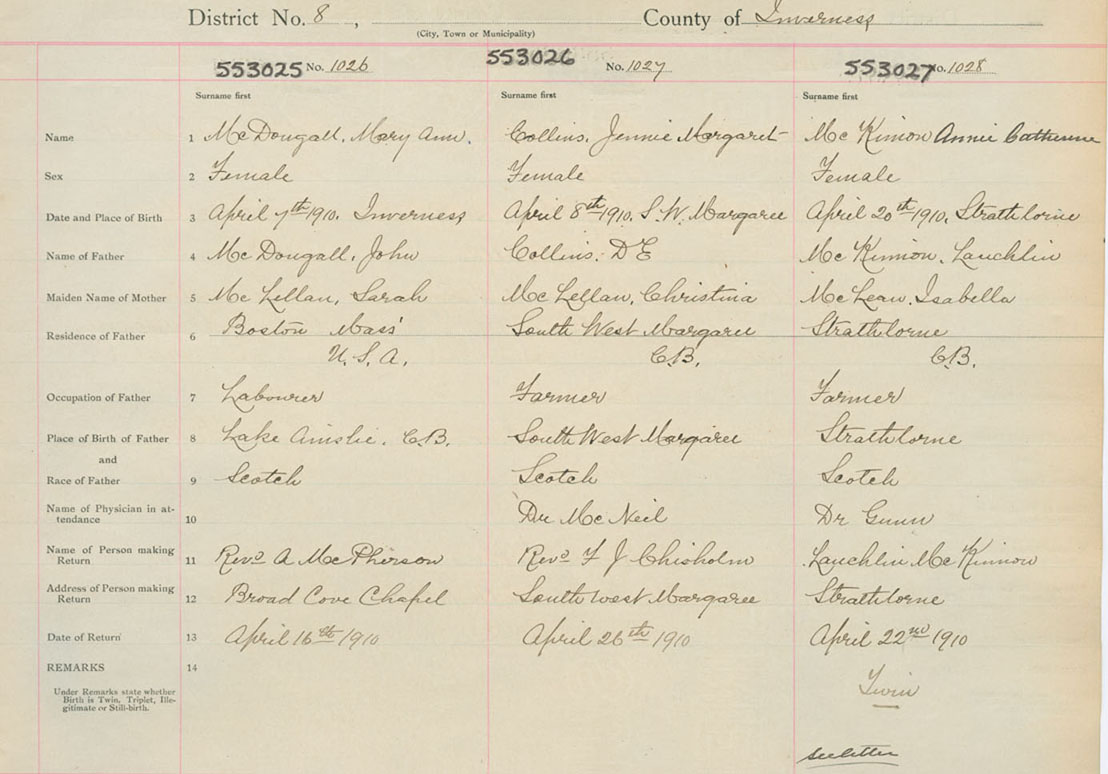 District No. 8, County of Inverness
(City, Town or Municipality)
553025 No. 1026 553026 No. 1027 553027 No. 1028
Surname first Surname first Surname first
Name 1 McDougall, Mary Ann. Collins, Jennie Margaret McKinnon Annie Catherine
Sex 2 Female Female Female
Date and Place of Birth 3 April 7th 1910. Inverness April 8th 1910. S.W. Margaree April 20th 1910. Strathlorne
Name of Father 4 McDougall, John Collins, D E McKinnon, Lauchlin
Maiden Name of Mother 5 McLellan, Sarah McLellan, Christina McLean, Isabella
Residence of Father 6 Boston Mass' South West Margaree Strathlorne
U.S.A. C.B. C.B.
Occupation of Father 7 Labourer Farmer Farmer
Place of Birth of Father 8 Lake Ainslie. C.B. South West Margaree Strathlorne
and
Race of Father 9 Scotch Scotch Scotch
Name of Physician in at-
tendance 10 Dr McNeil Dr Gunn
Name of Person making
Return 11 Revd A McPherson Revd F J Chisholm Lauchlin McKinnon
Address of Person making
Return 12 Broad Cove Chapel South west Margaree Strathlorne
Date of Return 13 April 16th 1910 April 26th 1910 April 22nd 1910
REMARKS 14
Under Remarks state whether
Birth is Twin, Triplet, Ille-
gitimate or Still-birth.
Twin
see letter